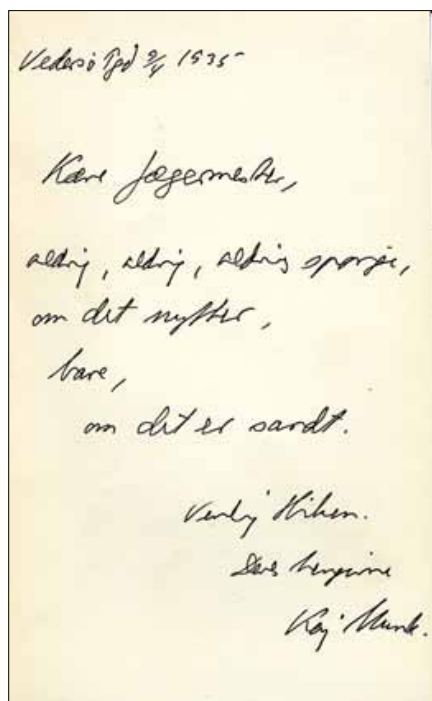 Vedersø Pgd 9/4 1935
Kære Jægermester,
aldrig, aldrig, aldrig spørge,
om det nytter,
bare,
om det er sandt.
Venlig Hilsen.
Deres hengivne
Kaj Munk.